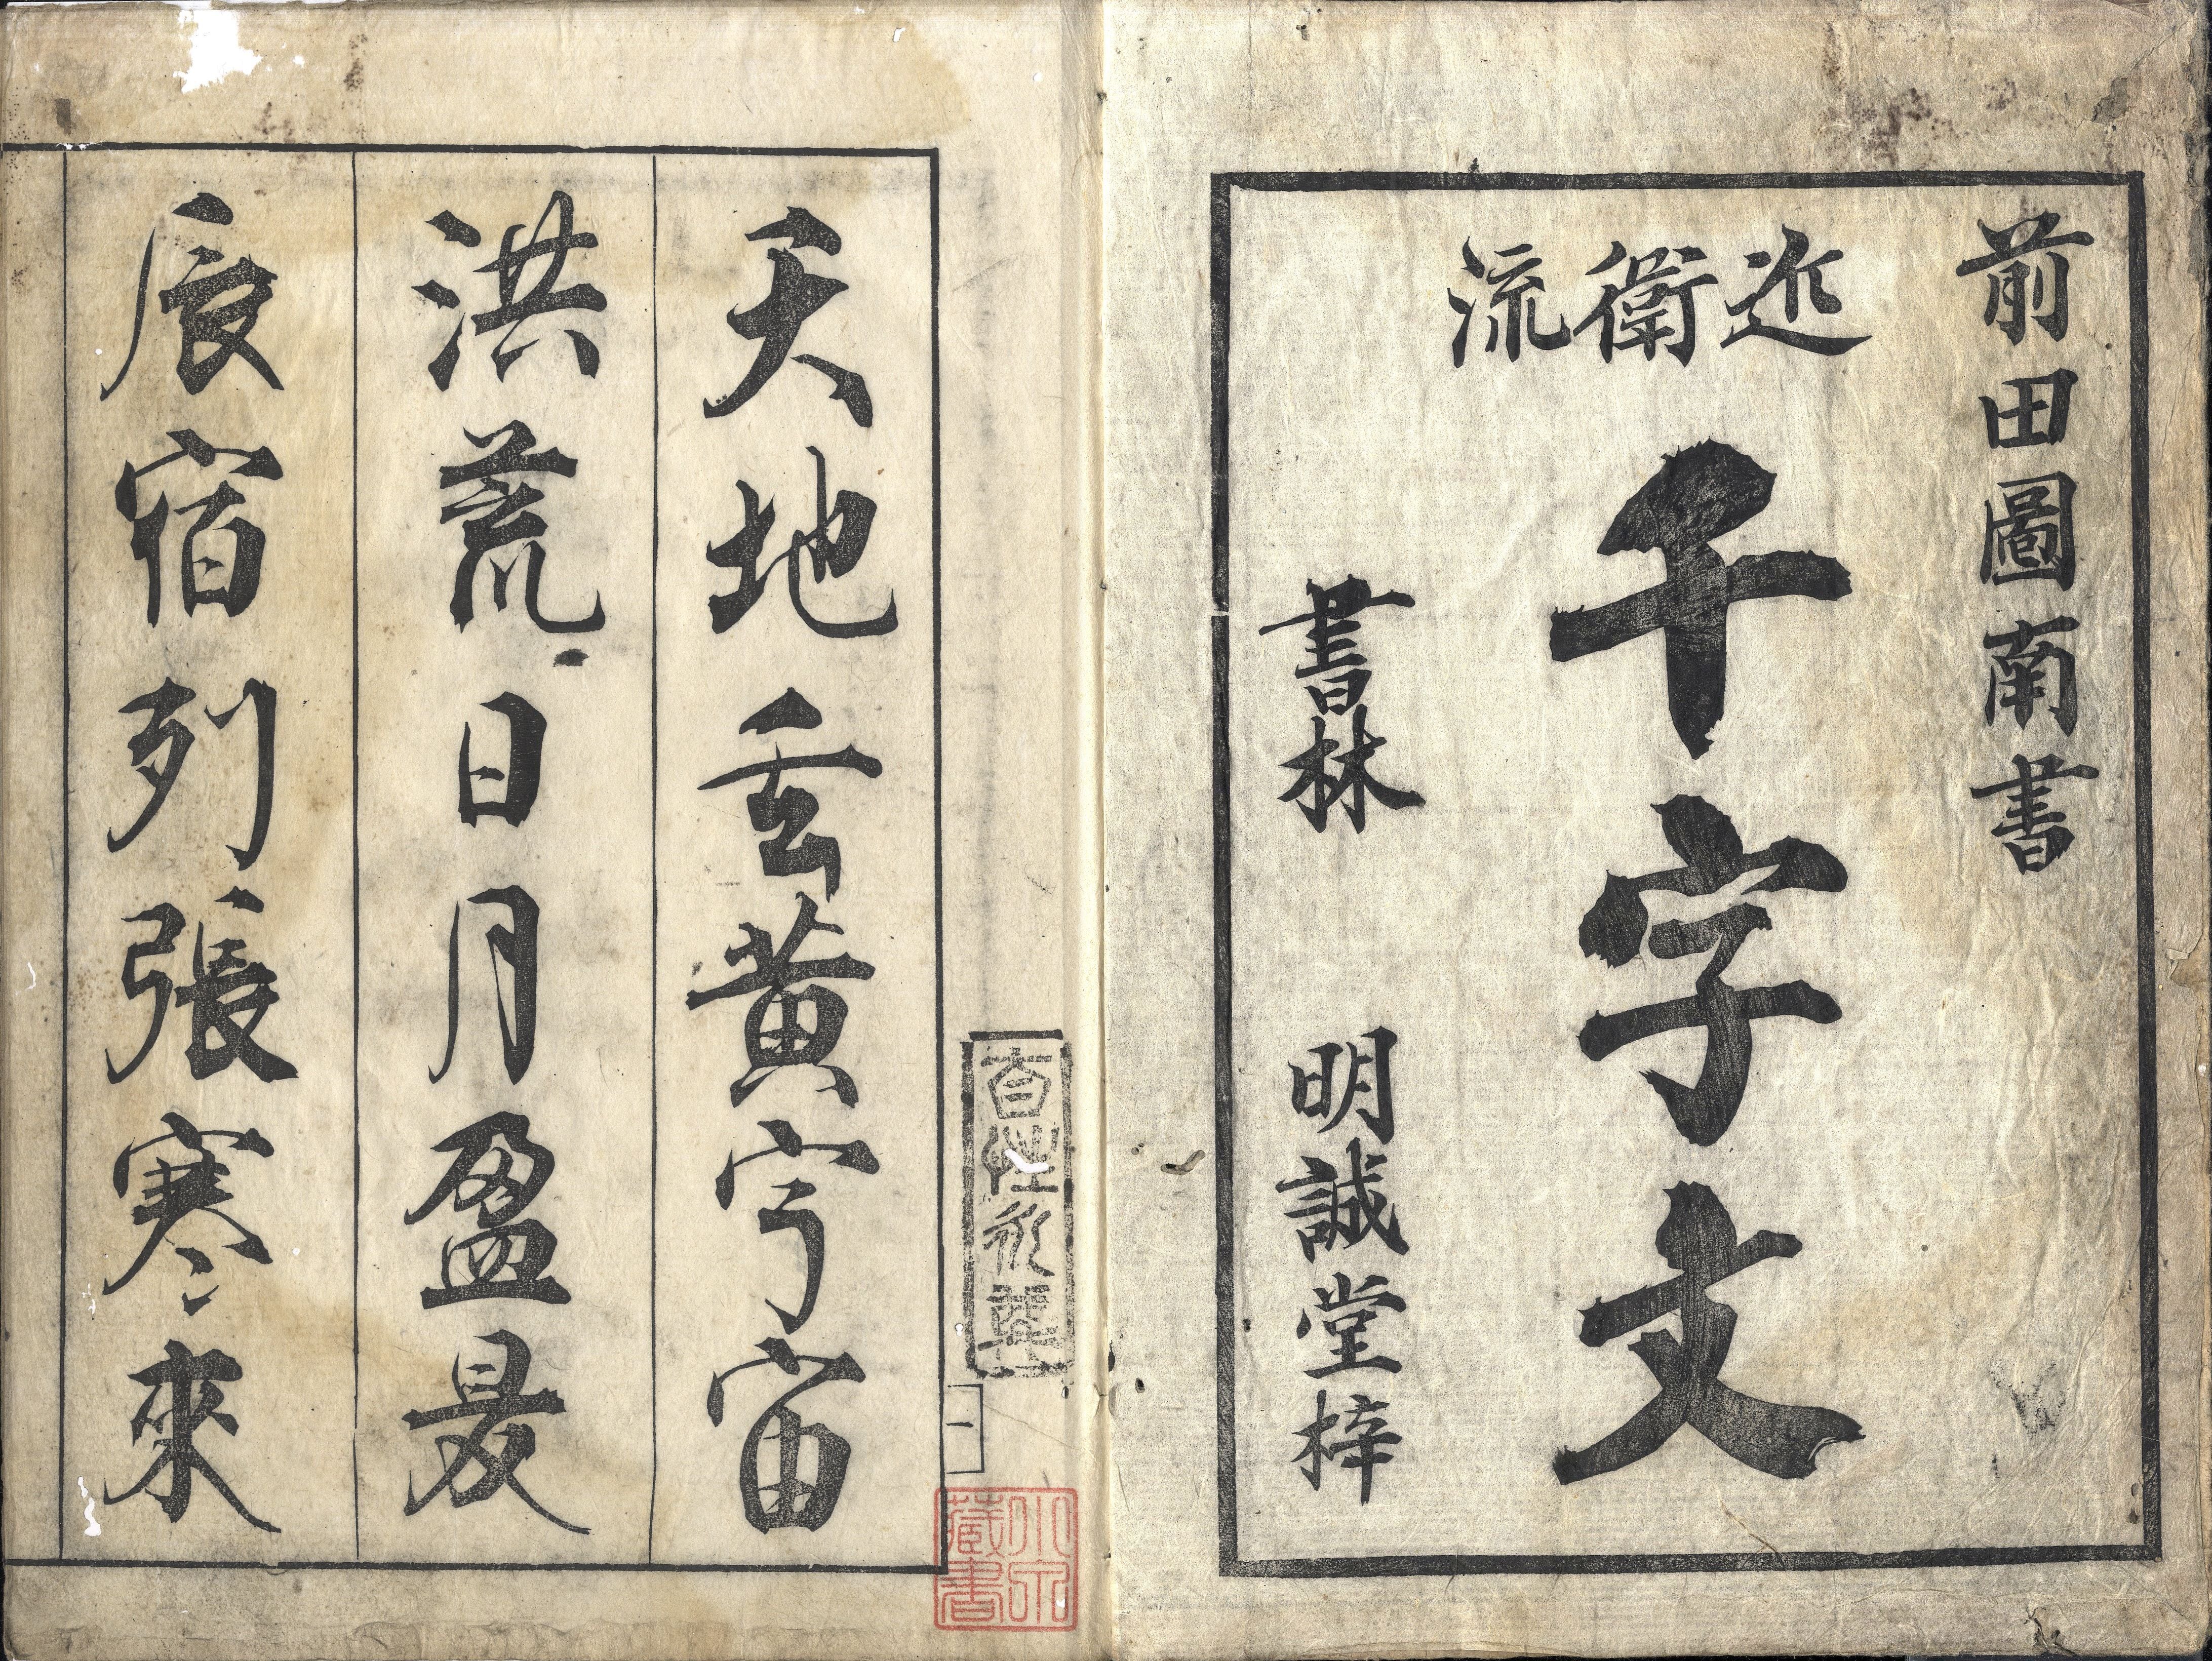 前田圖南書
近衛流
千字文
書林 明誠堂梓
一
藏書
天地玄黄宇宙
洪荒日月盈昃
辰宿列張寒來